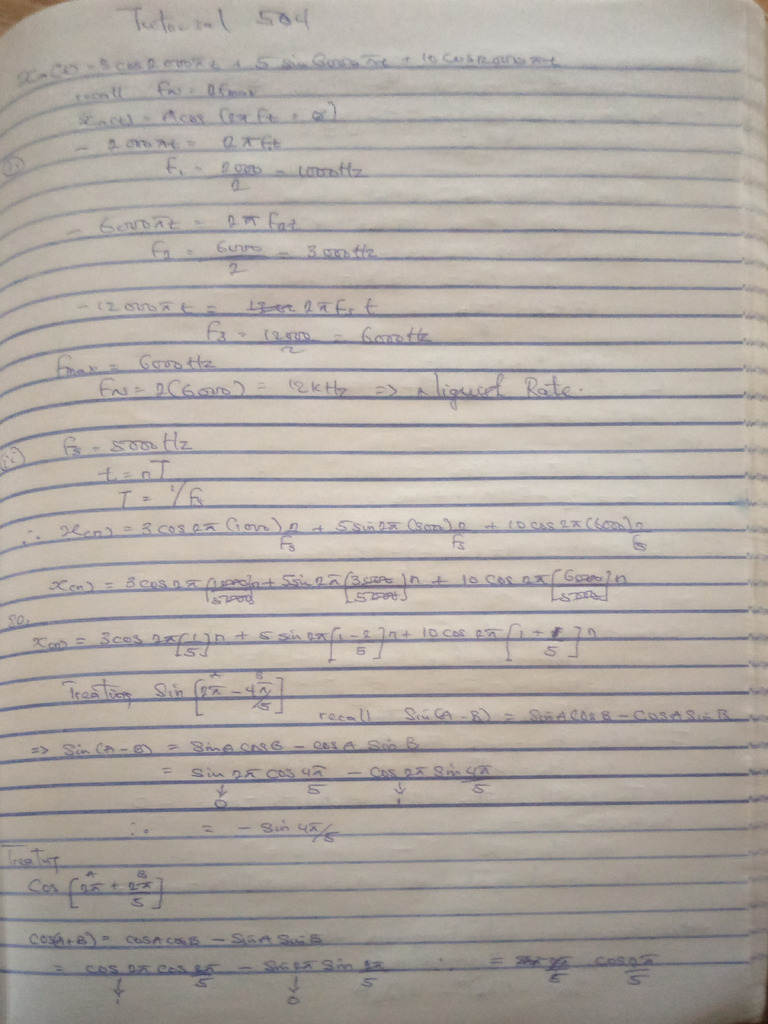 Tutorial 504
xa(t) = 3 cos 2000πt + 5 sin 6000πt + 10 cos 12000πt
recall FN = 2Fmax
xa(t) = A cos (2πft + θ)
(i) - 2000πt = 2πf1t
f1 = 2000/2 = 1000Hz
- 6000πt = 2πf2t
f2 = 6000/2 = 3000Hz
- 12000πt = 2πf3 t
f3 = 12000/2 = 6000Hz
Fmax = 6000Hz
FN = 2(6000) = 12kHz => Niquist Rate.
(ii) Fs = 5000Hz
t = nT
T = 1/Fs
∴ x(n) = 3 cos 2π (1000) n/Fs + 5 sin 2π (3000) n/Fs + 10 cos 2π (6000) n/Fs
x(n) = 3 cos 2π [1000/5000] n + 5 sin 2π [3000/5000] n + 10 cos 2π [6000/5000] n
so,
x(n) = 3 cos 2π [1/5] n + 5 sin 2π [1 - 2/5] n + 10 cos 2π [1 + 1/5] n
Treating Sin [2π - 4π/5] A B
recall Sin(A - B) = SinA CosB - CosA SinB
=> Sin(A - B) = SinA CosB - CosA SinB
= Sin 2π cos 4π/5 - Cos 2π Sin 4π/5
↓ 0 ↓ 1
∴ = - Sin 4π/5
Treating
Cos [2π + 2π/5] A B
Cos(A+B) = CosA CosB - SinA SinB
= Cos 2π cos 2π/5 - Sin 2π Sin 2π/5 ∴ = cos 2π/5
↓ 1 ↓ 0